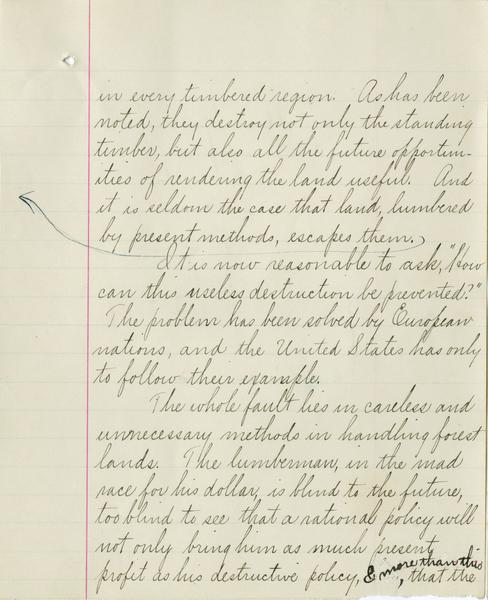 in every timbered region. As has been
noted, they destroy not only the standing
timber, but also all the future opportun-
ities of rendering the land useful. And
it is seldom the case that land, lumbered
by present methods, escapes them.
It is now reasonable to ask, "How
can this useless destruction be prevented?"
The problem has been solved by European
nations, and the United States has only
to follow their example.
The whole fault lies in careless and
unnecessary methods in handling forest
lands. The lumberman, in the mad
race for his dollar, is blind to the future,
too blind to see that a rational policy will
not only bring him as much present
profit as his destructive policy, & more than this, that the